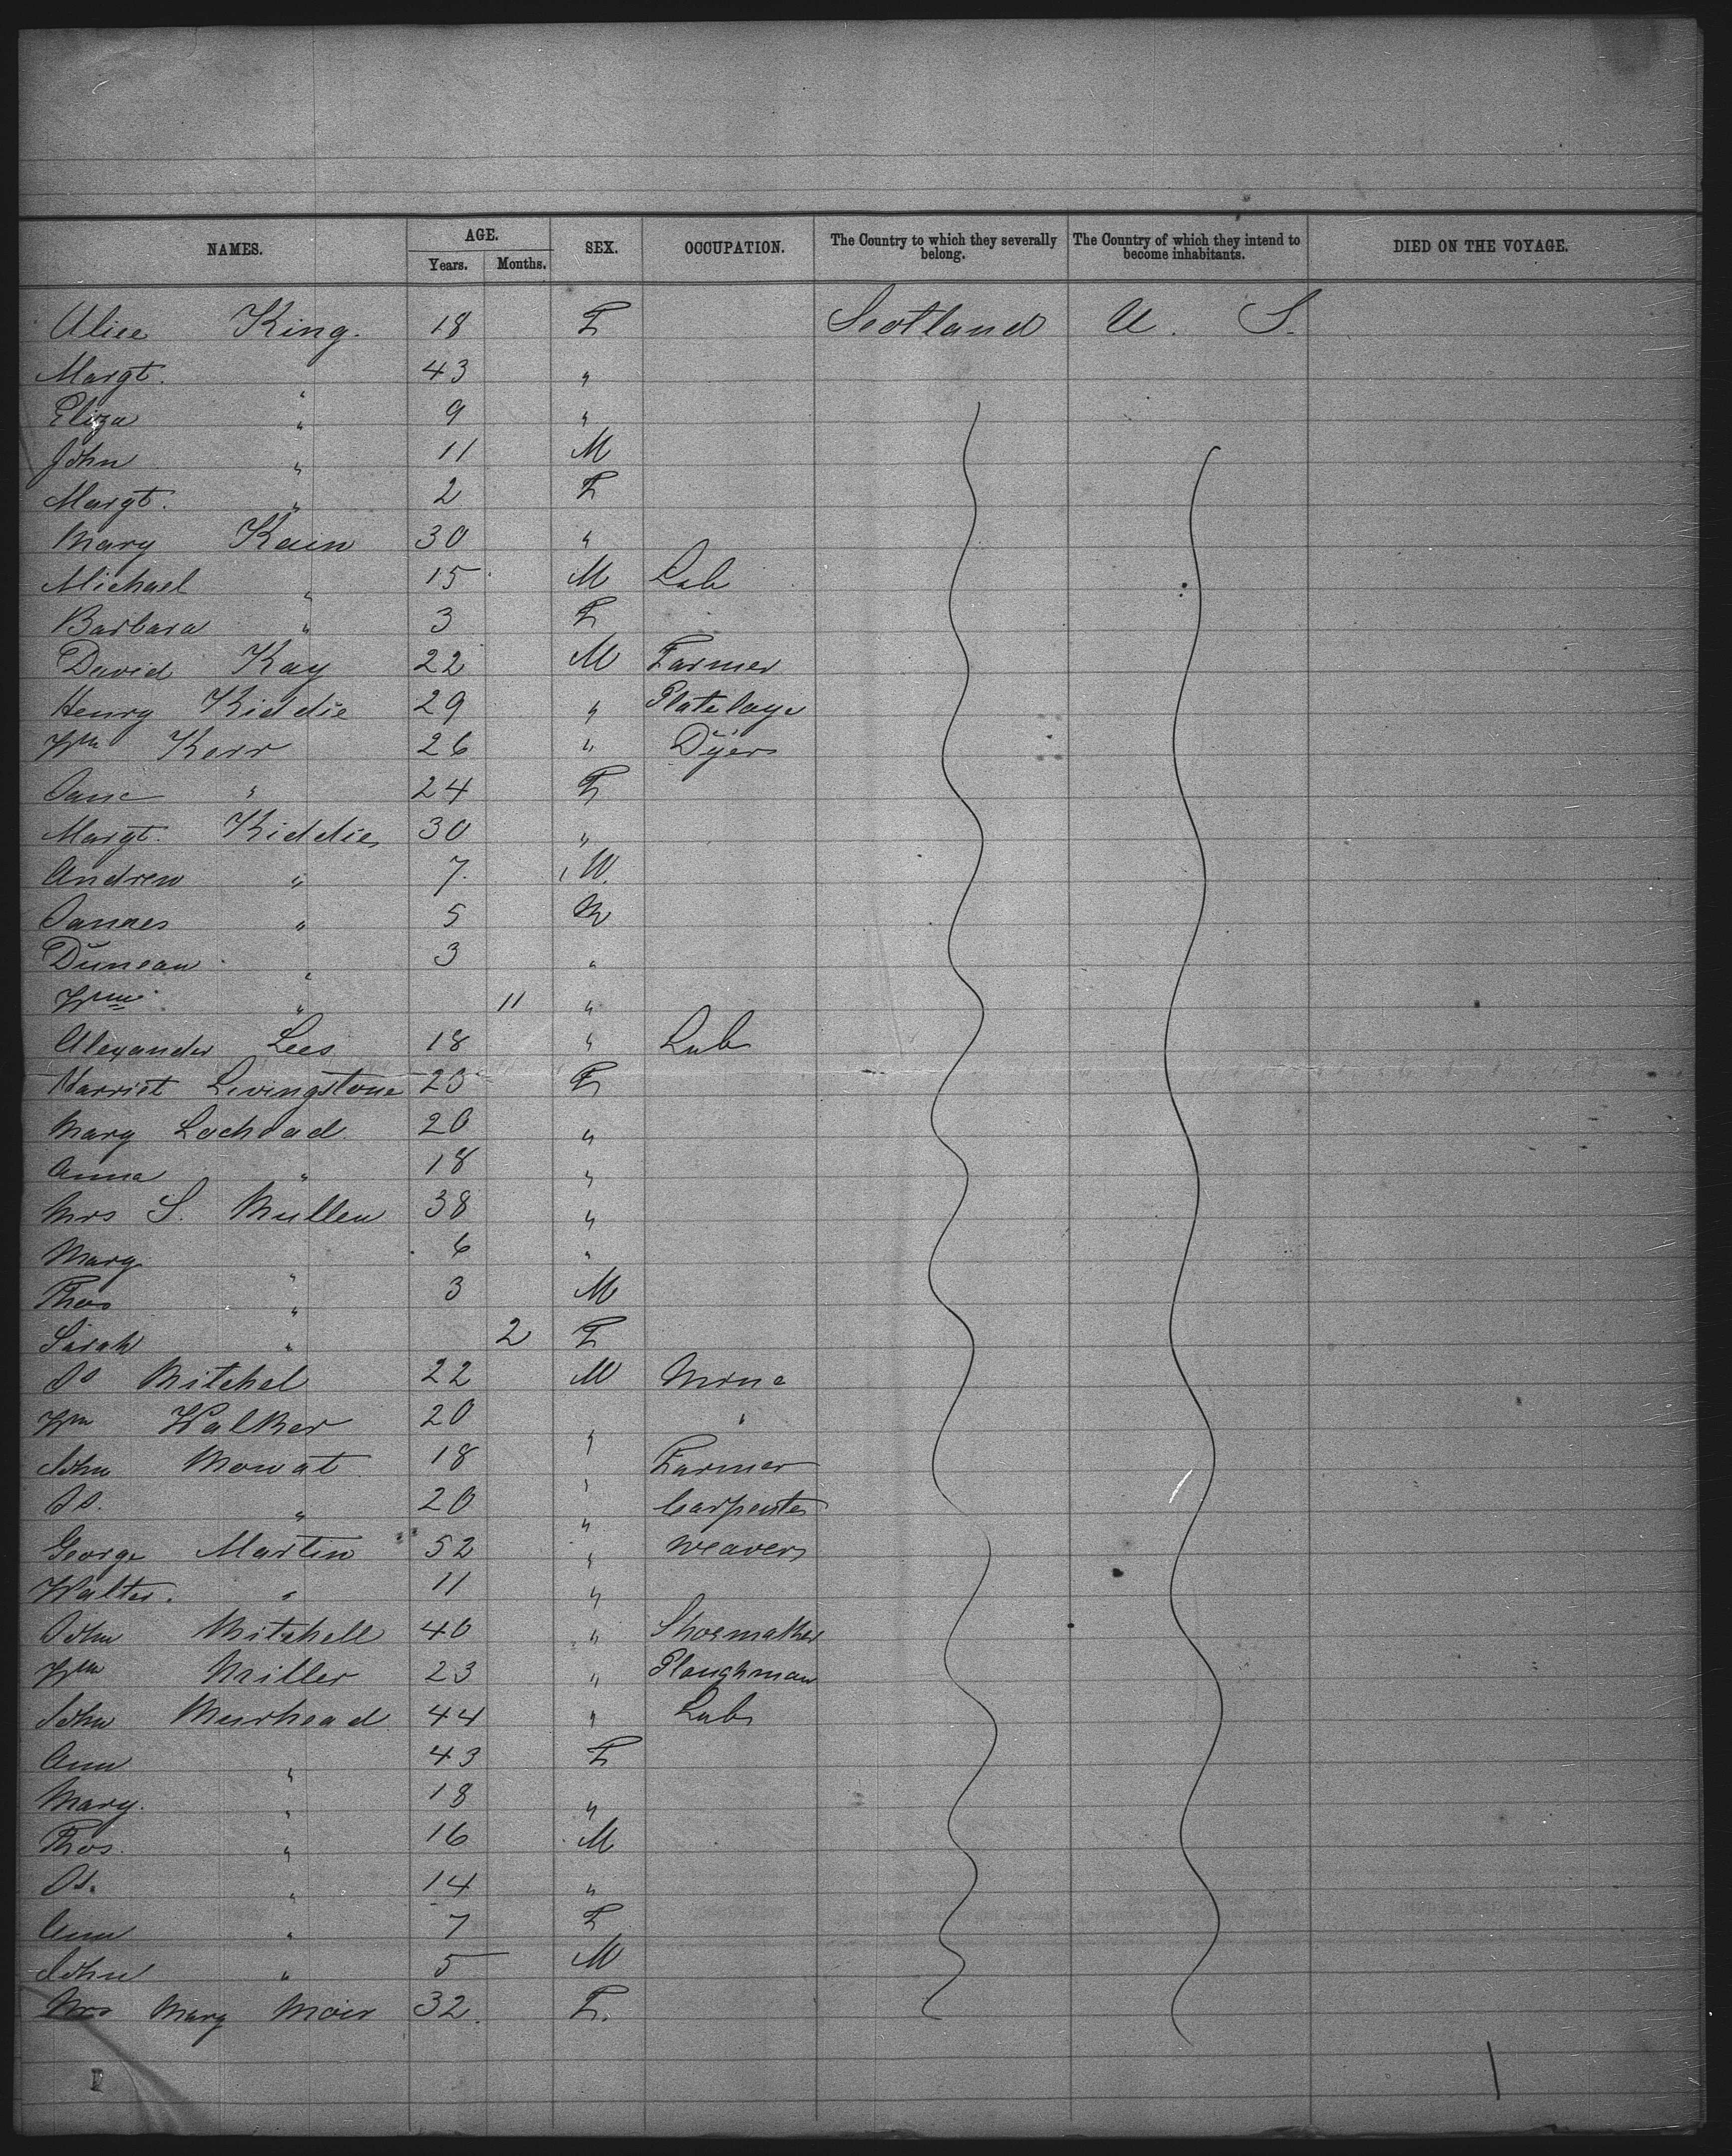 NAMES. AGE. SEX. OCCUPATION. The Country to which they severally belong. The Country of which they intend to become inhabitants. DIED ON THE VOYAGE.
Years. Months.
Alice King. 18 F Scotland U. S.
Margt. " 43 "
Eliza " 9 "
John " 11 M
Margt. " 2 F
Mary Kain 30 "
Michael " 15 M Lab
Barbara " 3 F
David Kay 22 M Farmer
Henry Kiddie 29 " Platelaye
Wm Kerr 26 " Dyer
Jane " 24 F
Margt. Kiddie 30 "
Andrew " 7 M
James " 5 M
Duncan " 3 "
Wm " 11 "
Alexander Lees 18 " Lab
Harriet Livingstone 23 F
Mary Lochead 20 "
Anna " 18 "
Mrs S. Mullen 38 "
Mary " 6 "
Thos " 3 M
Sarah " 2 F
Js Mitchel 22 M
Wm Walker 20 " "
John Mowat 18 " Farmer
Js. " 20 " Carpenter
George Martin 52 " Weaver
Walter. " 11 "
John Mitchell 40 " Shoemaker
Wm Miller 23 " Ploughman
John Muirhead 44 " Lab
Ann " 43 F
Mary. " 18 "
Thos. " 16 M
Js. " 14 "
Ann " 7 F
John " 5 M
Mrs Mary Moir 32 F.